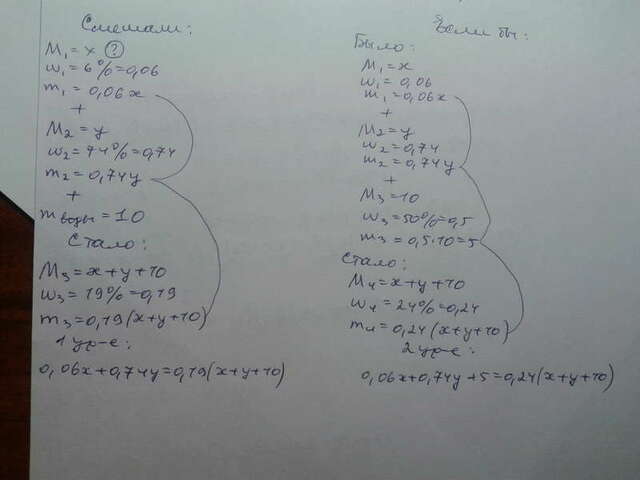 Смешали:
M₁ = x ?
w₁ = 6% = 0,06
m₁ = 0,06x
+
M₂ = y
w₂ = 74% = 0,74
m₂ = 0,74y
+
m воды = 10
Стало:
M₃ = x + y + 10
w₃ = 19% = 0,19
m₃ = 0,19(x + y + 10)
1 ур-е:
0,06x + 0,74y = 0,19(x + y + 10)
Если бы:
Было:
M₁ = x
w₁ = 0,06
m₁ = 0,06x
+
M₂ = y
w₂ = 0,74
m₂ = 0,74y
+
M₃ = 10
w₃ = 50% = 0,5
m₃ = 0,5·10 = 5
Стало:
M₄ = x + y + 10
w₄ = 24% = 0,24
m₄ = 0,24(x + y + 10)
2 ур-е:
0,06x + 0,74y + 5 = 0,24(x + y + 10)